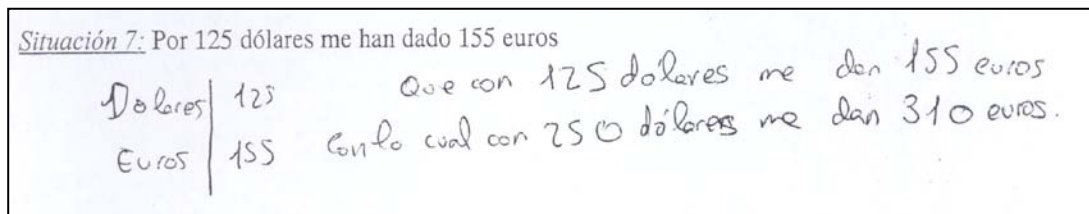 Situación 7: Por 125 dólares me han dado 155 euros
Dolares 125
Euros 155
Que con 125 dólares me dan 155 euros
Con lo cual con 250 dólares me dan 310 euros.